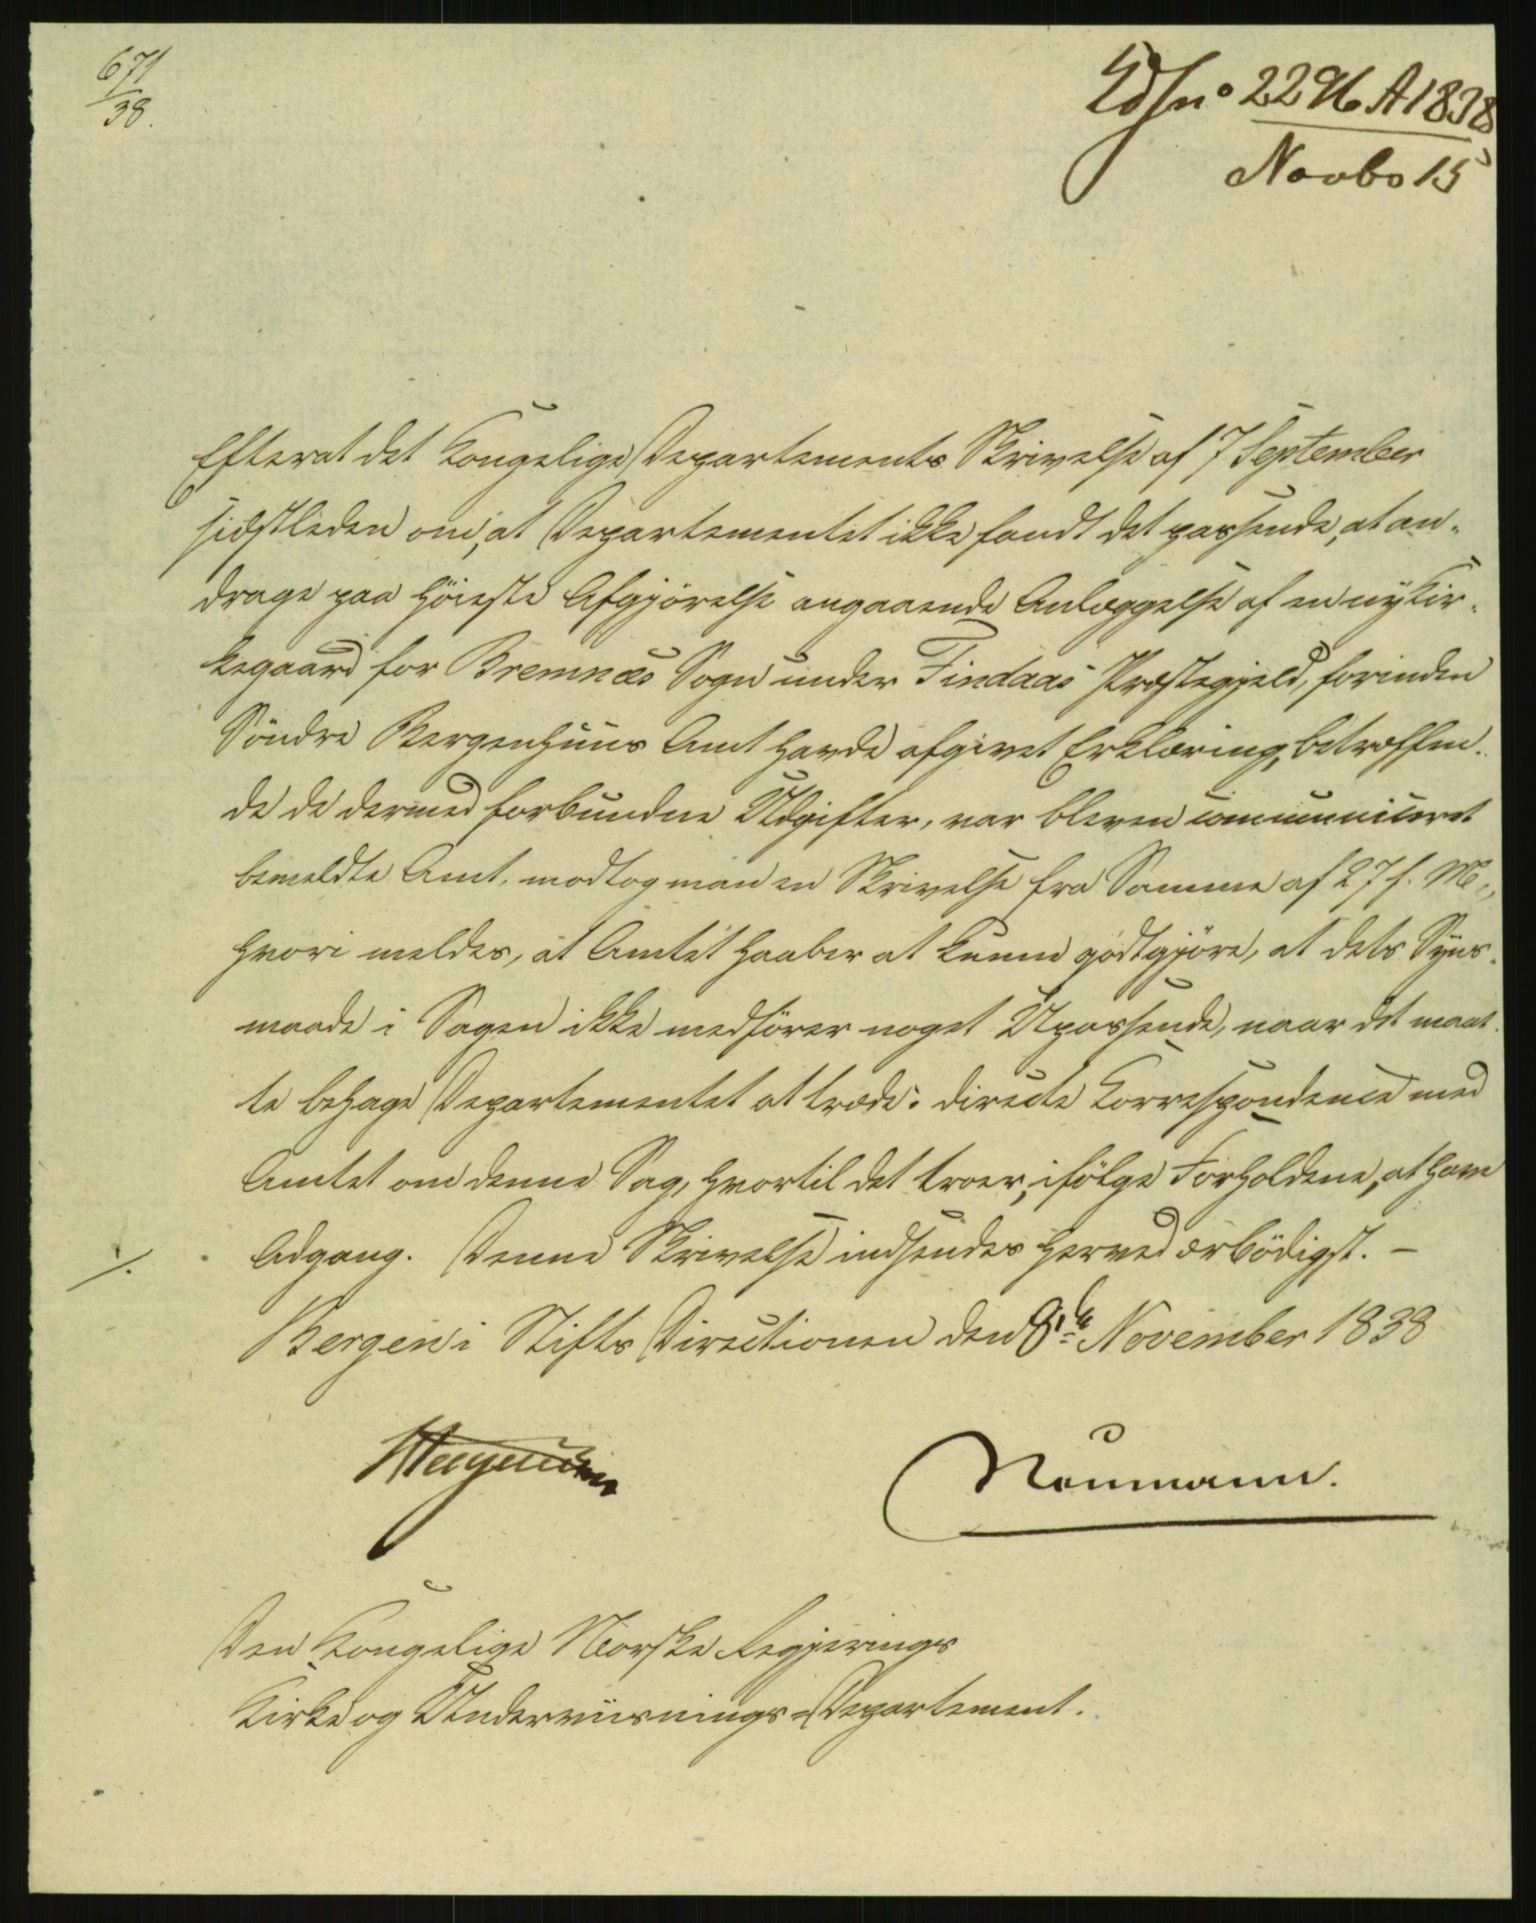 671
38.
No 2296 A 1838
Novbr 15
Efterat det Kongelige Departements Skrivelse af 7 September
sidstleden om, at Departementet ikke fandt det passende, at an-
drage paa Høieste Afgjörelse angaaende Anlæggelse af en ny Kir-
kegaard for Bremnæs Sogn under Findaas Præstegjeld, forinden
Söndre Bergenhuus Amt havde afgivet Erklæring, betræffen-
de de dermed forbundne Udgifter, var bleven communiceret
bemeldte Amt, modtog man en Skrivelse fra Samme af 27 f. M.,
hvori meldes, at Amtet haaber at kunne godtgjöre, at dets Syns-
maade i Sagen ikke medförer noget Upassende, naar det maat-
te behage Departementet at træde i directe Correspondence med
Amtet om denne Sag, hvortil det troer, ifölge Forholdene, at have
Adgang. Denne Skrivelse indsendes herved ærbödigst. –
./.
Bergen i Stifts Directionen den 8de November 1838
Neumann.
Den Kongelige Norske Regjerings
Kirke og Underviisnings-Departement.